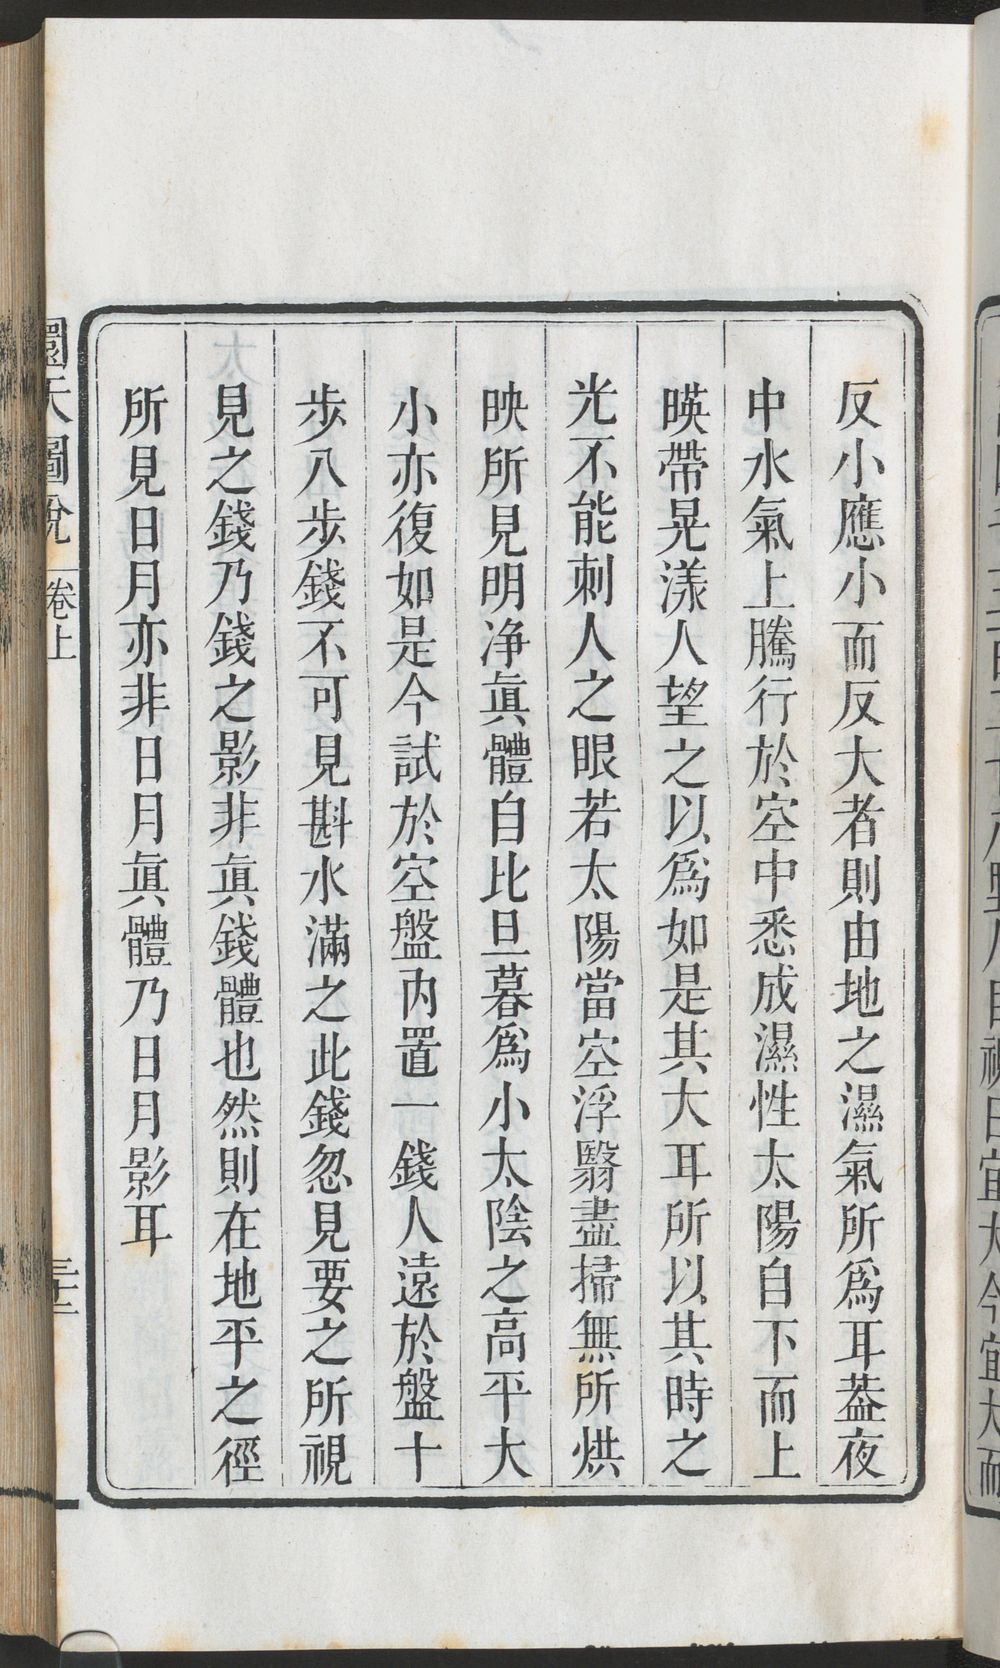 反小應小而反大者則由地之濕氣所爲耳葢夜
中水氣上騰行於空中悉成濕性太陽自下而上
暎帶晃漾人望之以爲如是其大耳所以其時之
光不能刺人之眼若太陽當空浮翳盡掃無所烘
映所見明净眞體自比旦暮爲小太陰之高平大
小亦復如是今試於空盤內置一錢人遠於盤十
步八步錢不可見斟水滿之此錢忽見要之所視
見之錢乃錢之影非眞錢體也然則在地平之徑
所見日月亦非日月眞體乃日月影耳
圜天圖說
卷上